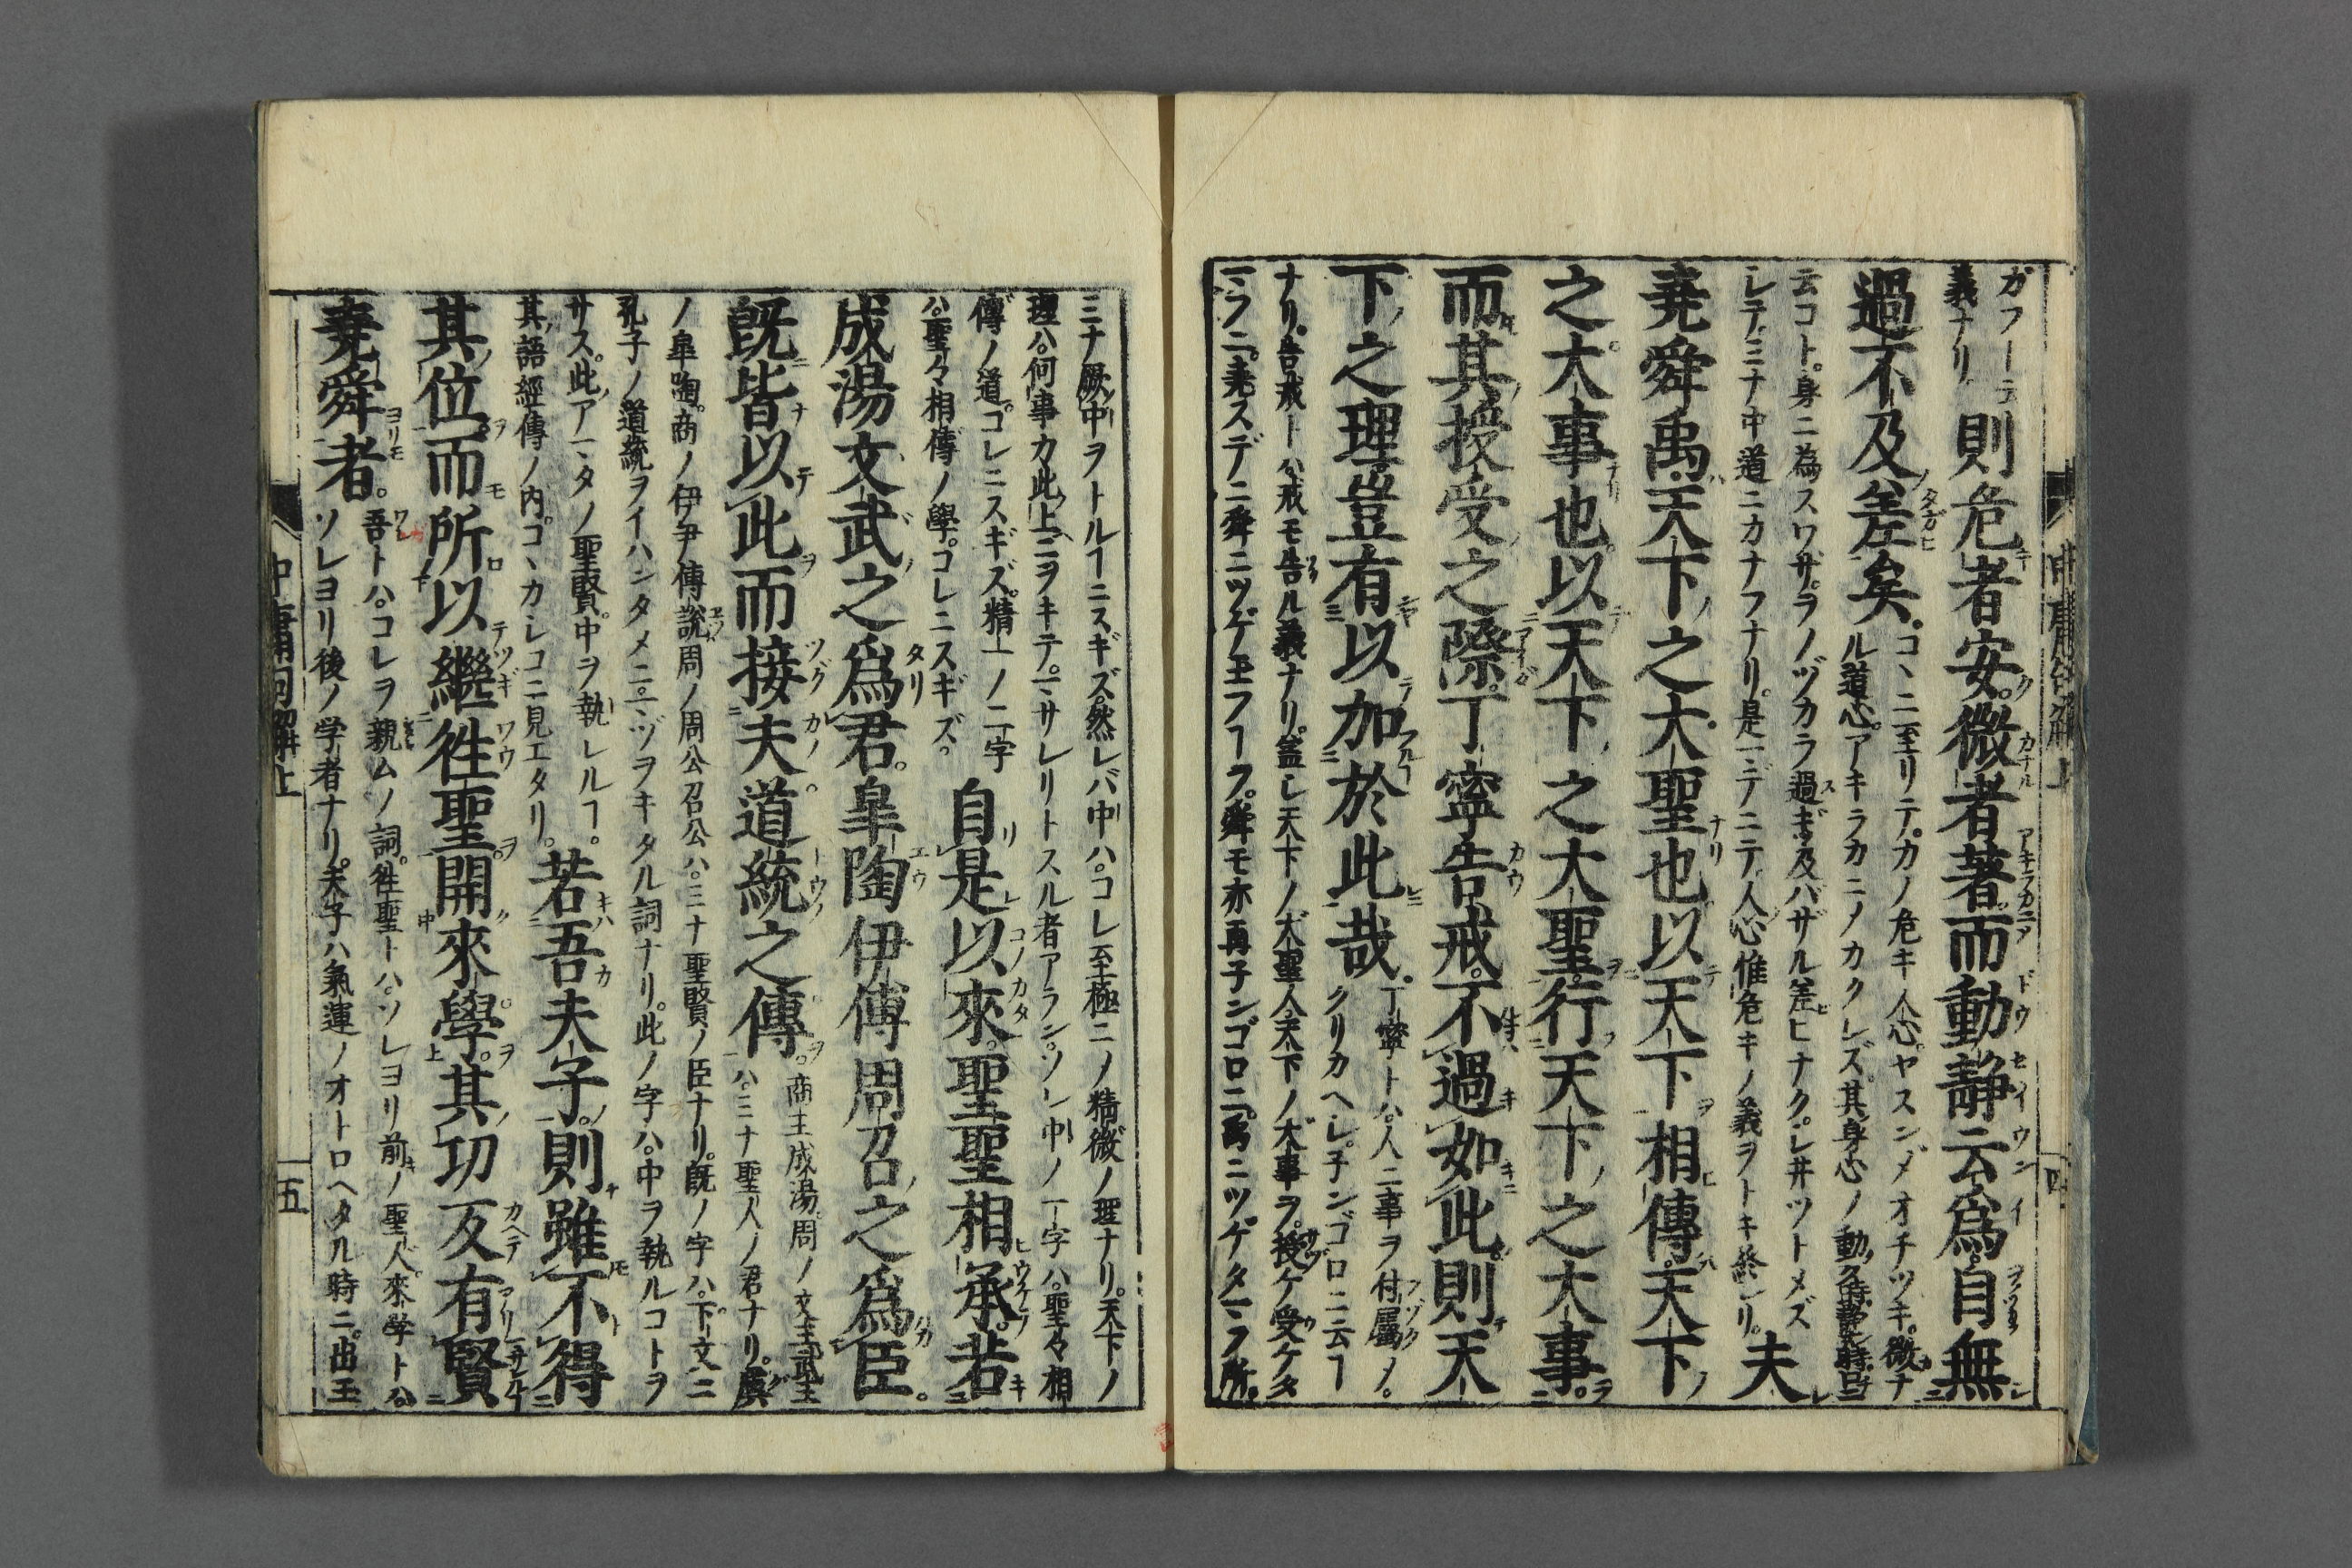 ガフーテ
義ナリ
則危者安微者著而動静云爲自無
過不及差矣
コヽニ至リテカノ危キ人心ヤスンゾオチツキ微ナ
ル道心アキラカニノカクレズ其身心ノ動ク時静ナル時
云コト身ニ為スワザヲノヅカラ過ギ及バザル差ヒナクレ井ツトメズ
レテミナ中道ニカナフナリ是マデニテ人心惟危キノ義ヲトキ終レリ
夫
堯舜禹天下之大聖也以天下相傳天下
之大事也以天下之大聖行天下之大事
而其授受之際丁寧告戒不過如此則天
下之理豈有以加於此哉
丁寧トハ人ニ事ヲ付属ノ
クリカヘレ子ンゴロニ云ヿ
ナリ告戒トハ戒モ告ル義ナリ盖レ天下ノ大聖人天下ノ大事ヲ授ケ受ケタ
マフニ堯スデニ舜ニツゲ玉フヿフ舜モ亦再子ンゴロニ禹ニツゲタマフ所
ミナ厥中ヲトルヿニスギズ然レバ中ハコレ至極ニノ精微ノ理ナリ天下ノ
理ハ何事カ此上ニヲキテマサレリトスル者アランソレ中ノ一字ハ聖々相
傳ノ道コレニスギズ精一ノ二字
ハ聖々相傳ノ學コレニスギズ
自是以來聖聖相承若
成湯文武之爲君皐陶伊傅周召之爲臣
既皆以此而接夫道統之傳
商王成湯周ノ文王武王
ハミナ聖人ノ君ナリ虞
ノ皐陶商ノ伊尹傅説周ノ周公召公ハミナ聖賢ノ臣ナリ既ノ字ハ下文ニ
孔子ノ道統ヲイハンタメニマヅヲキタル詞ナリ此ノ字ハ中ヲ執ルコトヲ
サス此アマタノ聖賢中ヲ執レルヿ
其語經傳ノ内コヽカレコニ見エタリ
若吾夫子則雖不得
其位而所以繼徃聖開來學其功反有賢
堯舜者
吾トハコレヲ親ムノ詞徃聖トハソレヨリ前ノ聖人來学トハ
ソレヨリ後ノ学者ナリ夫子ハ氣運ノオトロヘタル時ニ出玉
中庸
五